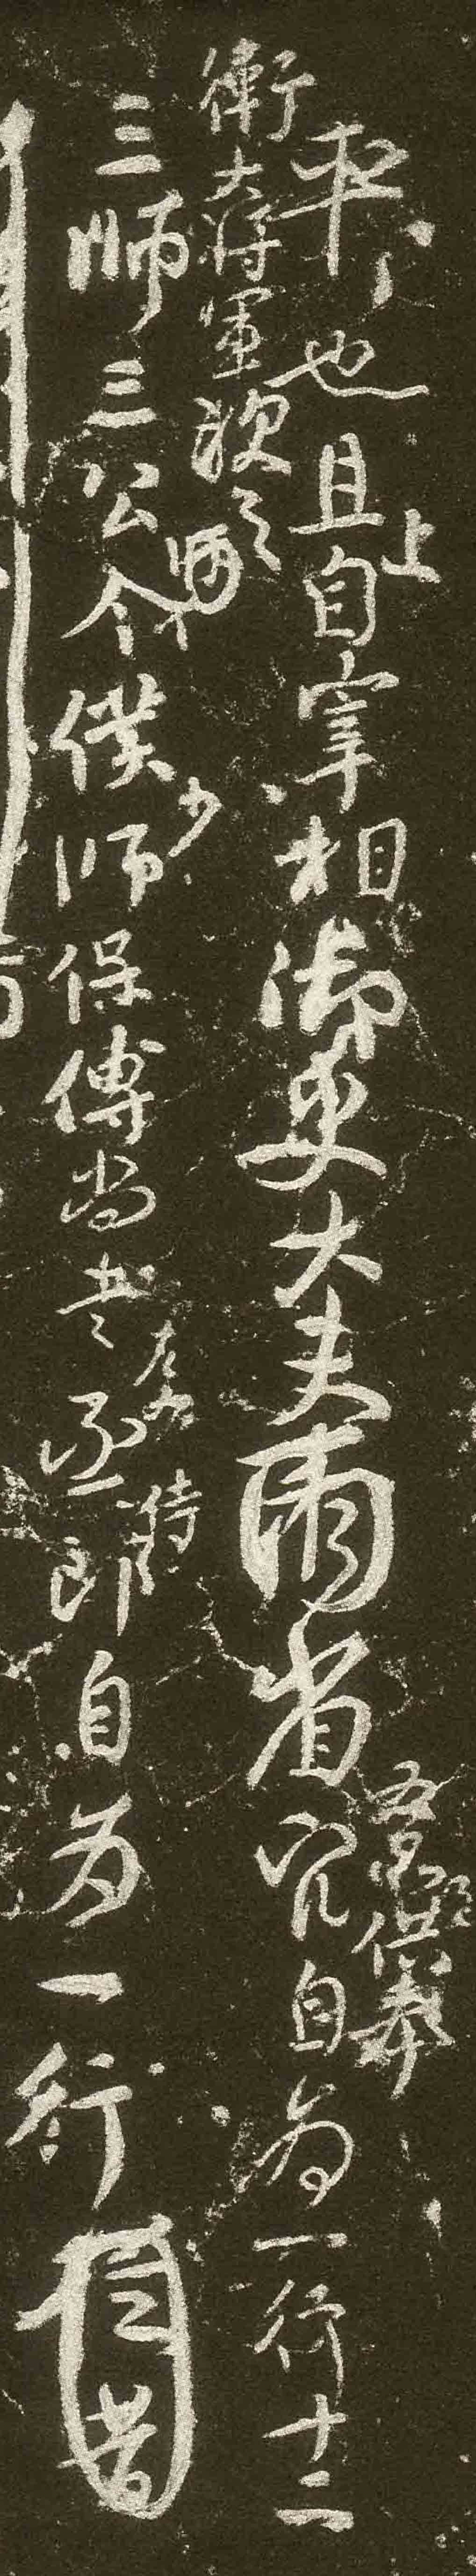 也且上自宰相御史大夫兩省五品供奉官自為一行十二
衛大將軍次之
三師三公令僕少師保傅尚書左右丞侍郎自為一行